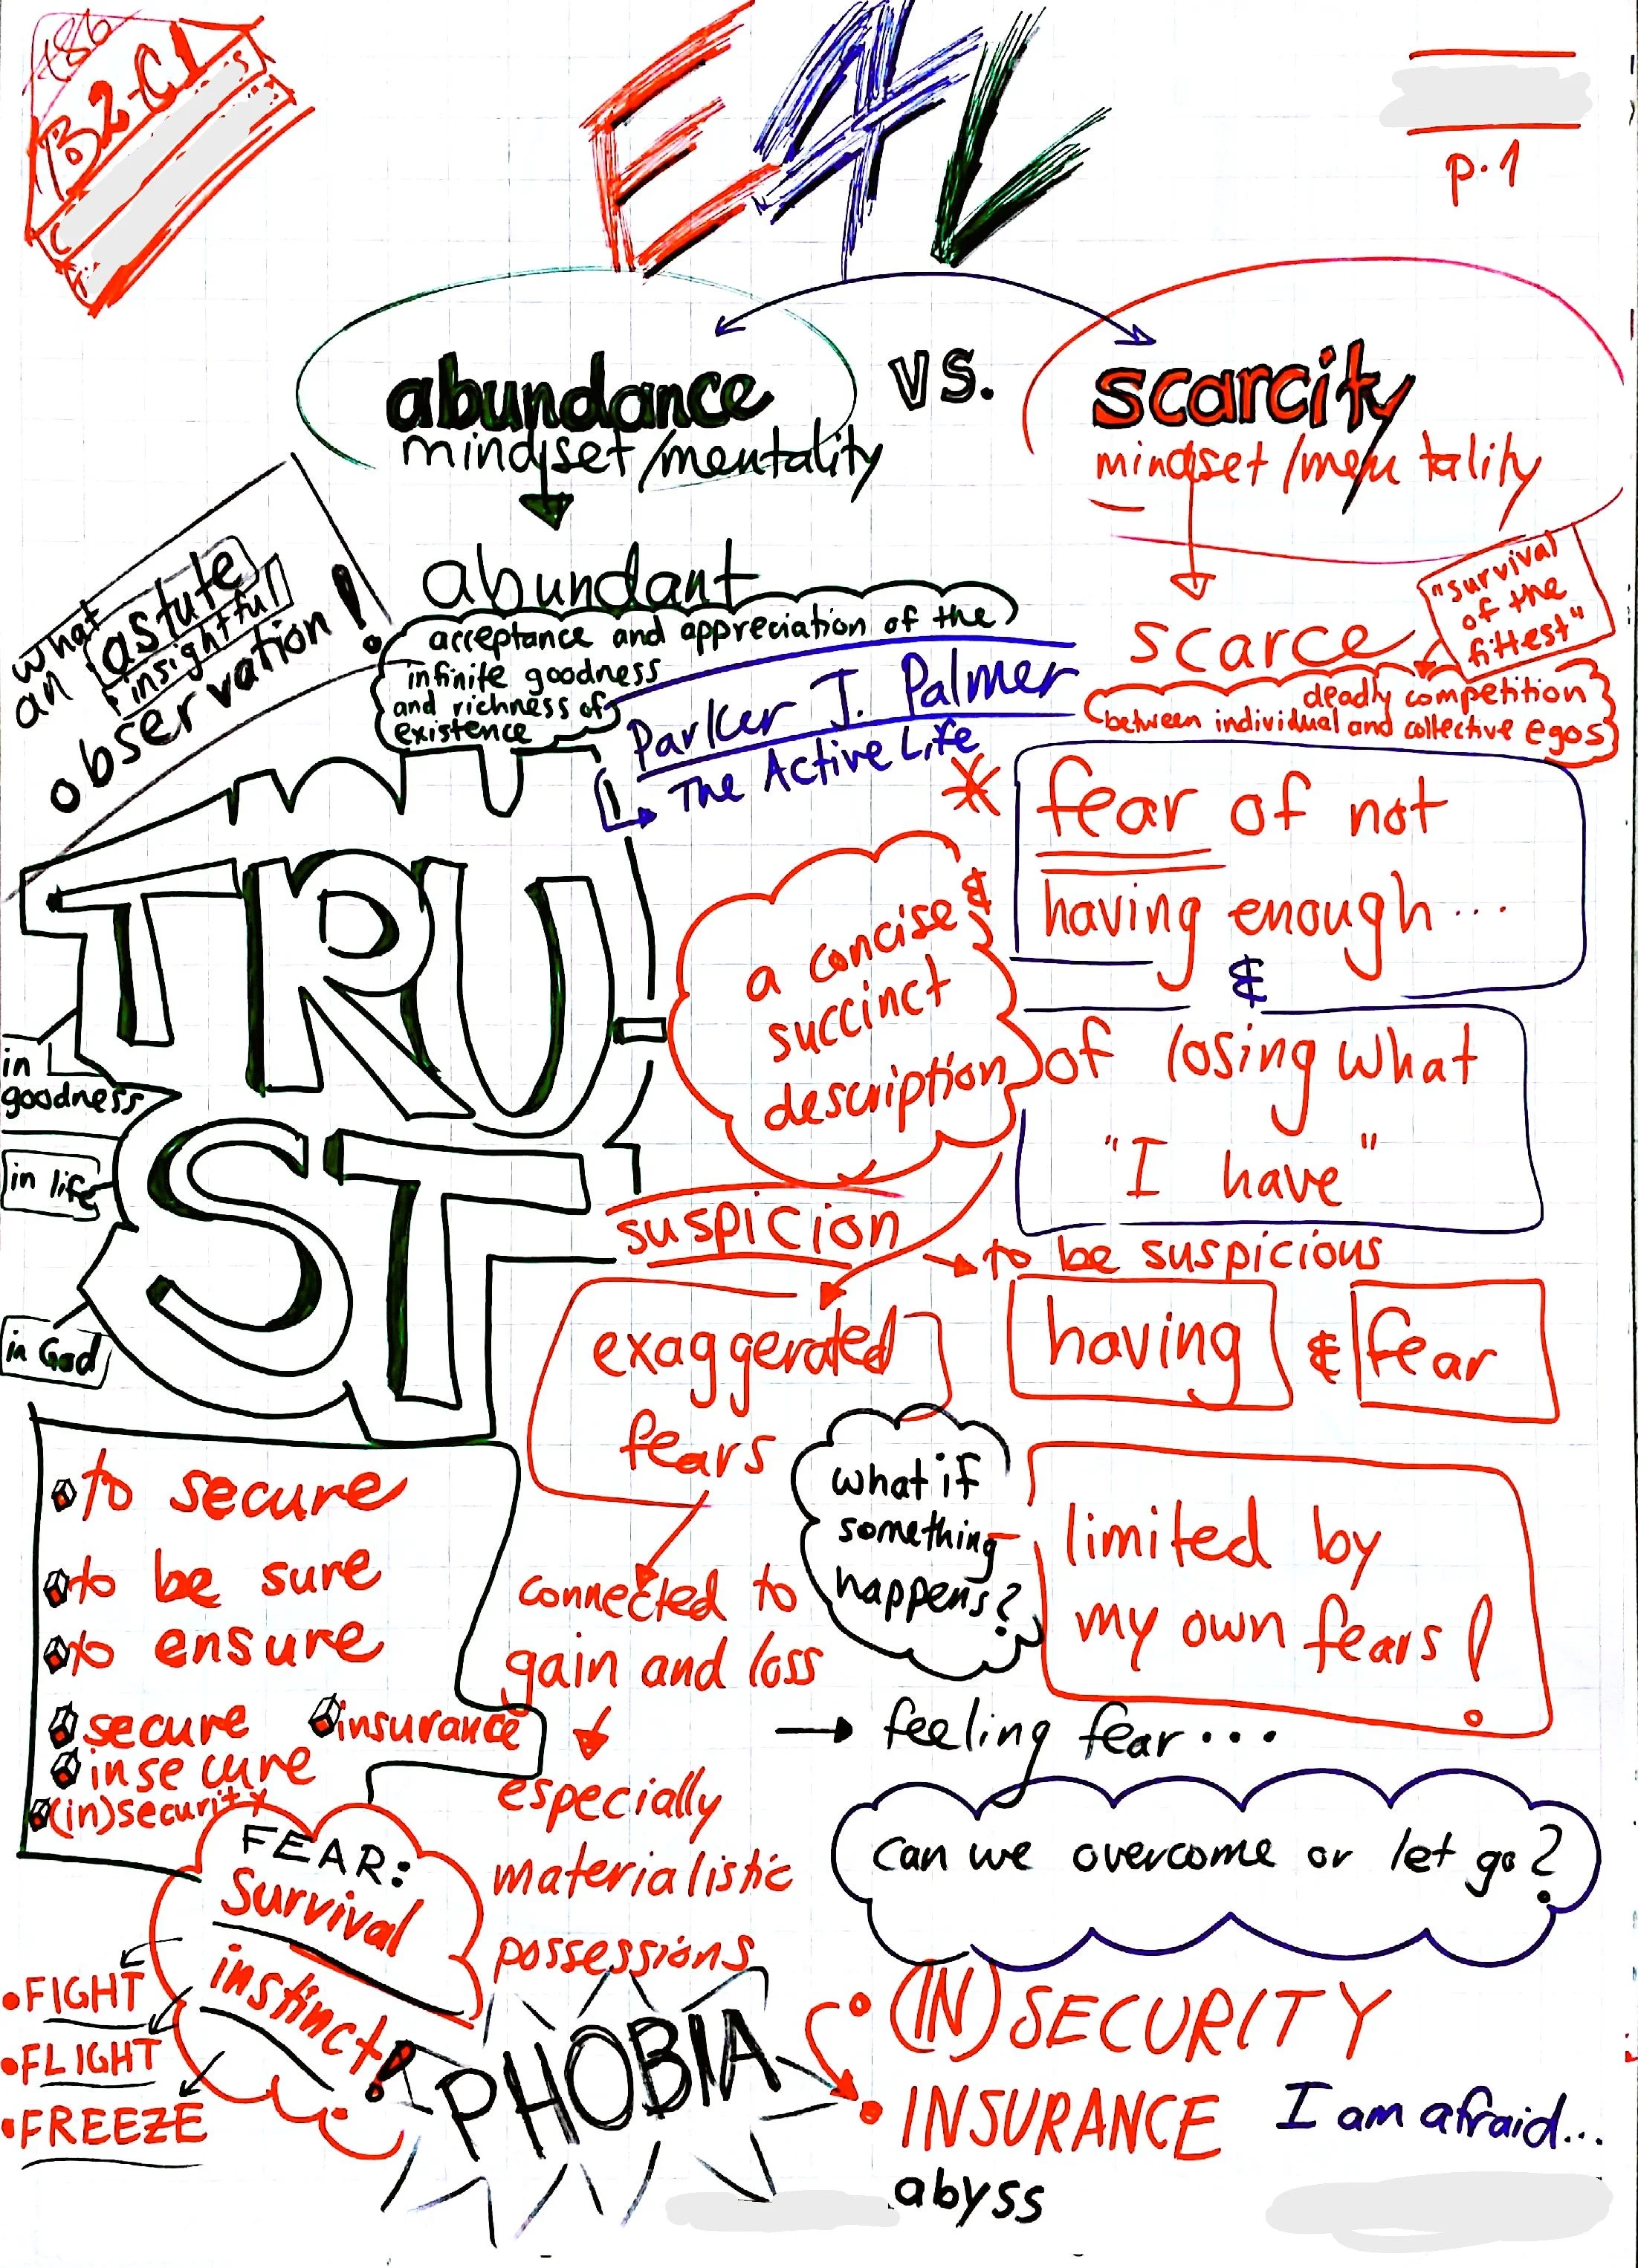 186
B2-C1
E4L
p.1
abundance
mindset/mentality
vs.
scarcity
mindset/mentality
what
an astute
insightful
observation!
abundant
acceptance and appreciation of the
infinite goodness
and richness of
existence
Parker J. Palmer
The Active Life
scarce
"survival
of the
fittest"
deadly competition
between individual and collective egos
* fear of not
having enough...
&
of losing what
"I have"
a concise &
succinct
description
TRU-
ST
in
goodness
in life
in God
suspicion
to be suspicious
exaggerated
fears
having & fear
what if
something
happens?
limited by
my own fears!
to secure
to be sure
to ensure
secure insurance
insecure
(in)security
connected to
gain and loss
especially
materialistic
possessions
→ feeling fear...
can we overcome or let go?
FEAR:
Survival
instinct!
• FIGHT
• FLIGHT
• FREEZE
PHOBIA
• (IN)SECURITY
• INSURANCE
I am afraid...
abyss